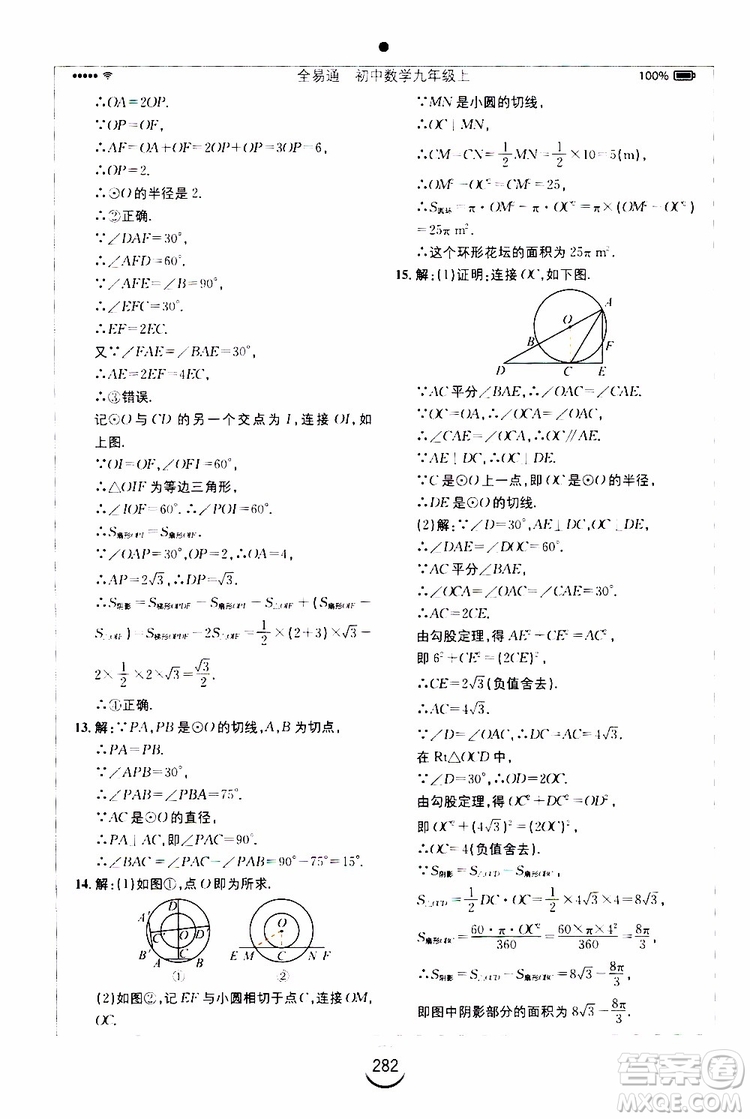 全易通 初中数学九年级上
100%
∴OA=2OP.
∵OP=OF,
∴AF=OA+OF=2OP+OP=3OP=6,
∴OP=2.
∴⊙O的半径是2.
∴②正确.
∵∠DAF=30°,
∴∠AFD=60°.
∵∠AFE=∠B=90°,
∴∠EFC=30°.
∴EF=2EC.
又∵∠FAE=∠BAE=30°,
∴AE=2EF=4EC,
∴③错误.
记⊙O与CD的另一个交点为I,连接OI,如
上图.
∵OI=OF,∠OFI=60°,
∴△OIF为等边三角形,
∴∠IOF=60°.∴∠POI=60°.
∴S扇形OPI=S扇形OIF.
∵∠OAP=30°,OP=2,
∴AP=2√3,∴DP=√3.
∴S阴影=S梯形OPDF-S扇形OPI-S△OIF+(S扇形OIF-
S△OIF)=S梯形OPDF-2S△OIF=1/2×(2+3)×√3-
2×1/2×2×√3=√3/2.
∴①正确.
13.解:∵PA,PB是⊙O的切线,A,B为切点,
∴PA=PB.
∵∠APB=30°,
∴∠PAB=∠PBA=75°.
∵AC是⊙O的直径,
∴PA⊥AC,即∠PAC=90°.
∴∠BAC=∠PAC-∠PAB=90°-75°=15°.
14.解:(1)如图①,点O即为所求.
A' D A C' O D' B' C B
①
O E M C N F
②
(2)如图②,记EF与小圆相切于点C,连接OM,
OC.
∵MN是小圆的切线,
∴OC⊥MN,
∴CM=CN=1/2MN=1/2×10=5(m),
∴OM²-OC²=CM²=25,
∴S圆环=π·OM²-π·OC²=π×(OM²-OC²)
=25π m².
∴这个环形花坛的面积为25π m².
15.解:(1)证明:连接OC,如下图.
A O B F D C E
∵AC平分∠BAE,∴∠OAC=∠CAE.
∵OC=OA,∴∠OCA=∠OAC.
∴∠CAE=∠OCA,∴OC∥AE.
∵AE⊥DC,∴OC⊥DE.
∵C是⊙O上一点,即OC是⊙O的半径,
∴DE是⊙O的切线.
(2)解:∵∠D=30°,AE⊥DE,OC⊥DE,
∴∠DAE=∠DOC=60°.
∵AC平分∠BAE,
∴∠OCA=∠OAC=∠CAE=30°.
∴AC=2CE.
由勾股定理,得AE²+CE²=AC²,
即6²+CE²=(2CE)².
∴CE=2√3(负值舍去).
∴AC=4√3.
∵∠D=∠CAO,∴DC=AC=4√3.
在Rt△OCD中,
∵∠D=30°,∴OD=2OC.
由勾股定理,得OC²+DC²=OD²,
即OC²+(4√3)²=(2OC)².
∴OC=4(负值舍去).
∵S阴影=S△OCD-S扇形OBC,
S△OCD=1/2DC·OC=1/2×4√3×4=8√3,
S扇形OBC=60·π·OC²/360=60×π×4²/360=8π/3,
∴S阴影=S△OCD-S扇形OBC=8√3-8π/3,
即图中阴影部分的面积为8√3-8π/3.
282
答案圈
MXQE.COM